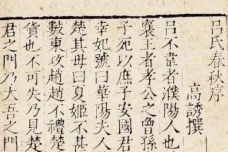 呂氏春秋序
高誘撰
呂不韋者濮陽人也
襄王者孝公之曾孫
子死以庶子安國君
幸妃號曰華陽夫人
楚其母曰夏姬不甚
數東攻趙趙不禮楚
貨也不可失乃見楚
君之門乃大吾之門